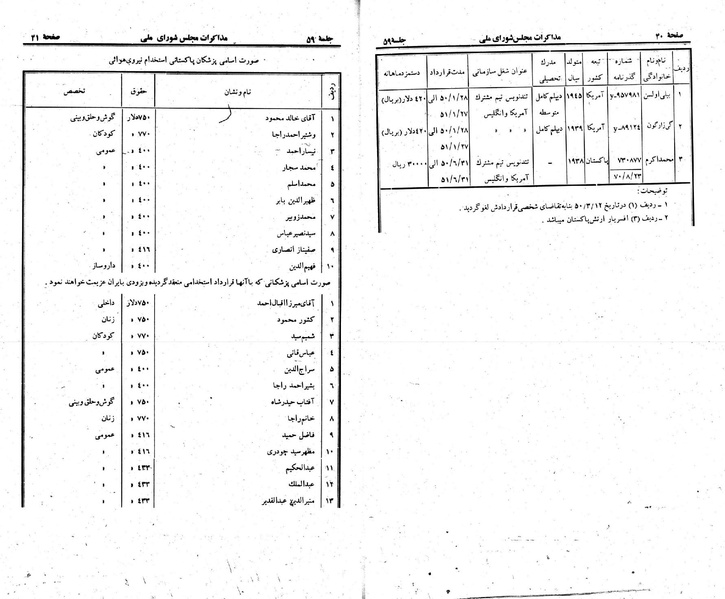 صفحهٔ ۲۰ مذاکرات مجلس شورای ملی جلسهٔ ۵۹
ردیف نام و نام خانوادگی شماره گذرنامه تبعه کشور متولد سال مدرک تحصیلی عنوان شغل سازمانی مدت قرارداد دستمزد ماهانه
۱ بیلی اولسن y-۹۵۷۹۸۱ آمریکا ۱۹۴۵ دیپلم کامل متوسطه تندنویس تیم مشترک آمریکا و انگلیس ۵۰/۱/۲۸ الی ۵۱/۱/۲۷ ۴۲۰ دلار (بریال)
۲ y-۸۹۱۲۴ آمریکا ۱۹۳۹ دیپلم کامل » » » ۵۰/۱/۲۸ الی ۵۱/۱/۲۷ ۴۲۰ دلار (بریال)
۳ محمد اکرم ۷۳۰۸۷۷ ۷۰/۸/۲۳ پاکستان ۱۹۳۸ - تندنویس تیم مشترک آمریکا و انگلیس ۵۰/۶/۳۱ الی ۵۱/۶/۳۱ ۳۰۰۰۰ ریال
توضیحات :
۱ ـ ردیف (۱) در تاریخ ۵۰/۳/۱۲ بنا به تقاضای شخصی قراردادش لغو گردید .
۲ ـ ردیف (۳) افسر یار ارتش پاکستان میباشد .
جلسهٔ ۵۹ مذاکرات مجلس شورای ملی صفحهٔ ۲۱
صورت اسامی پزشکان پاکستانی استخدام نیروی هوائی
ردیف نام و نشان حقوق تخصص
۱ آقای خالد محمود ۷۵۰ دلار گوش و حلق و بینی
۲ وشتیر احمد راجا ۷۷۰ » کودکان
۳ نیسار احمد ۴۰۰ » عمومی
۴ محمد سجار ۴۰۰ » »
۵ محمد اسلم ۴۰۰ » »
۶ ظهیرالدین بابر ۴۰۰ » »
۷ محمد زوبیر ۴۰۰ » »
۸ سید نصیر عباس ۴۰۰ » »
۹ صفیناز انصاری ۴۱۶ » »
۱۰ فهیم الدین ۴۰۰ » داروساز
صورت اسامی پزشکانی که با آنها قرارداد استخدامی منعقد گردیده و بزودی بایران عزیمت خواهند نمود .
۱ آقای میرزا اقبال احمد ۷۵۰ دلار داخلی
۲ کشور محمود ۷۵۰ » زنان
۳ شمیم سید ۷۷۰ » کودکان
۴ عباس قانی ۷۵۰ » »
۵ سراج الدین ۴۰۰ » عمومی
۶ بشیر احمد راجا ۴۰۰ » »
۷ آفتاب حیدر شاه ۷۵۰ » گوش و حلق و بینی
۸ خانم راجا ۷۷۰ » زنان
۹ فاضل حمید ۴۱۶ » عمومی
۱۰ مظهر سید چودری ۴۱۶ » »
۱۱ عبدالحکیم ۴۳۳ » »
۱۲ عبدالملک ۴۳۳ » »
۱۳ منیرالدین عبدالقدیر ۴۳۳ » »